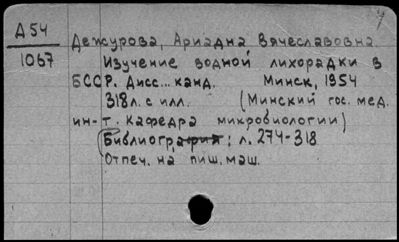 А54
1067
Дежурова, Ариадна Вячеславовна.
Изучение водной лихорадки в
БССР. Дисс... канд. Минск, 1954
318л. с илл. (Минский гос. мед.
ин-т. Кафедра микробиологии)
(Библиография: л. 274-318
Отпеч. на пиш. маш.